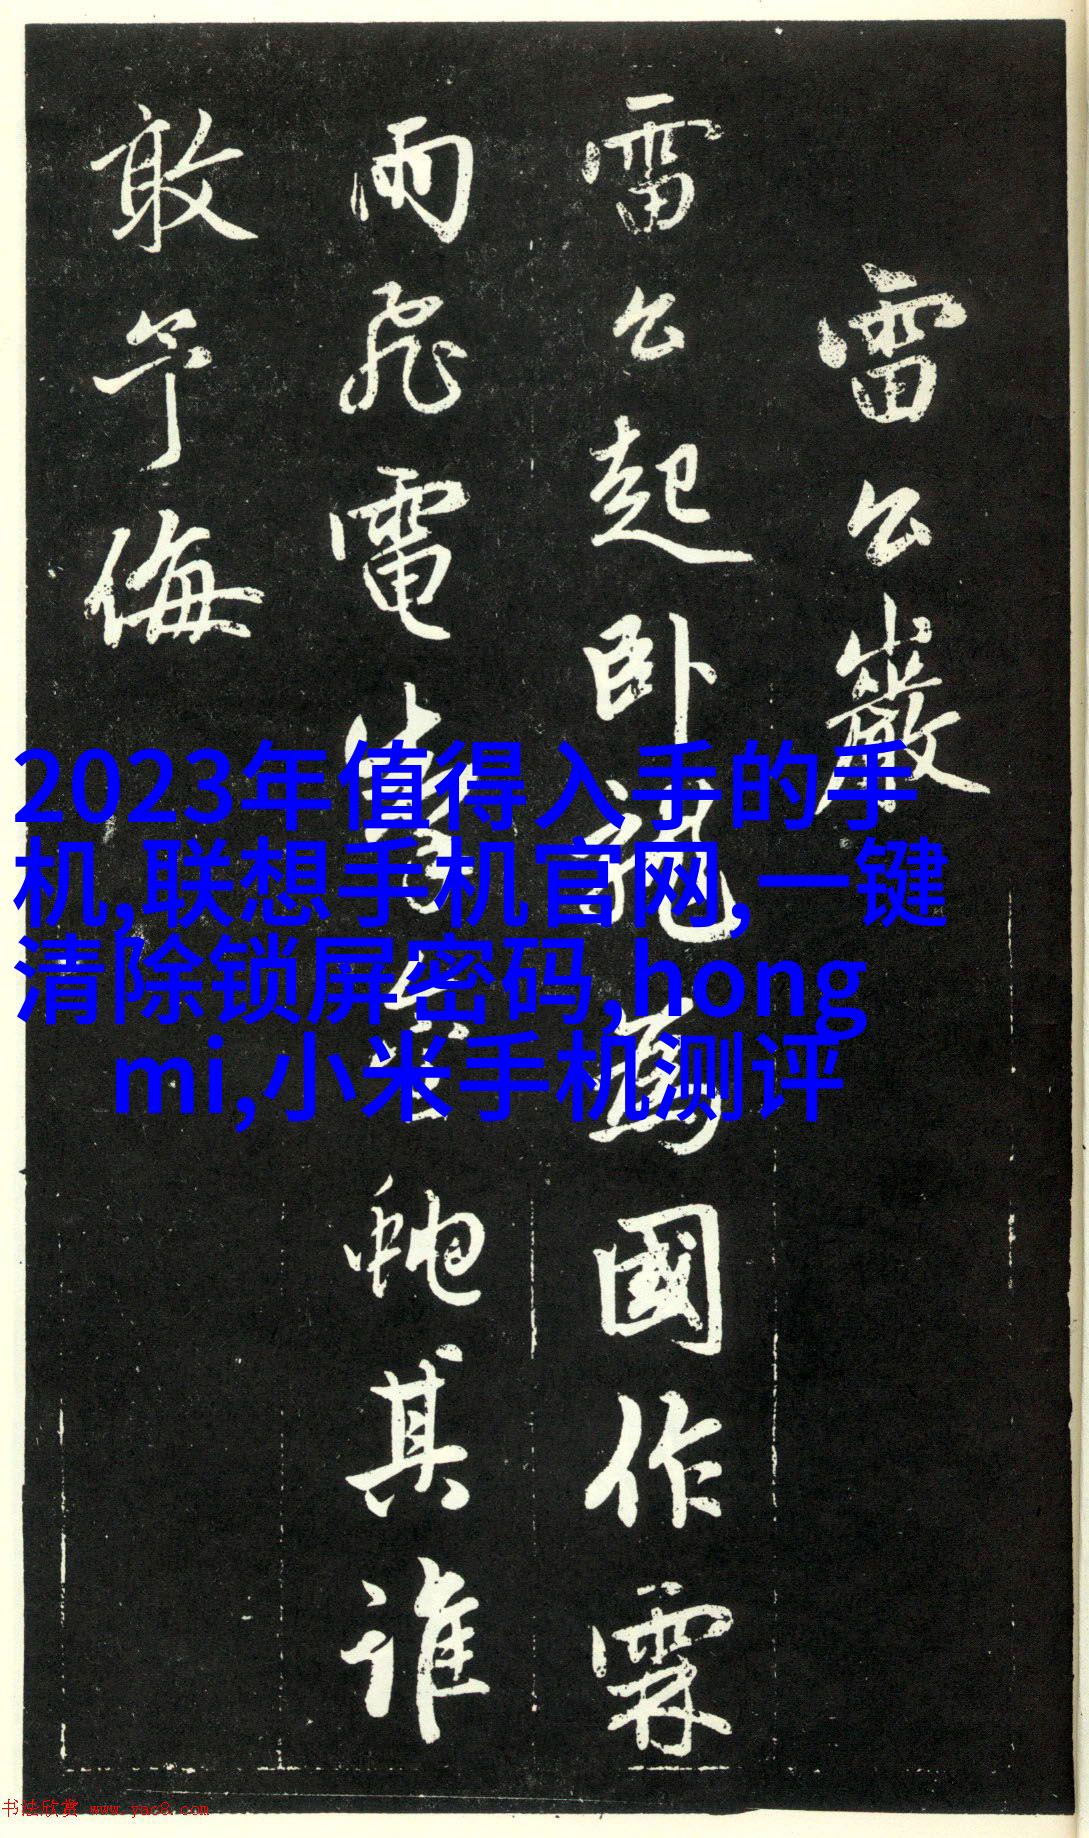 雷公巖
雷公起卧龍為國作霖
雨飛電掣金虵其誰
敢予侮
2023年值得入手的手
机,联想手机官网,一键
清除锁屏密码,hong
mi,小米手机测评
书法欣赏 www.yac8.com